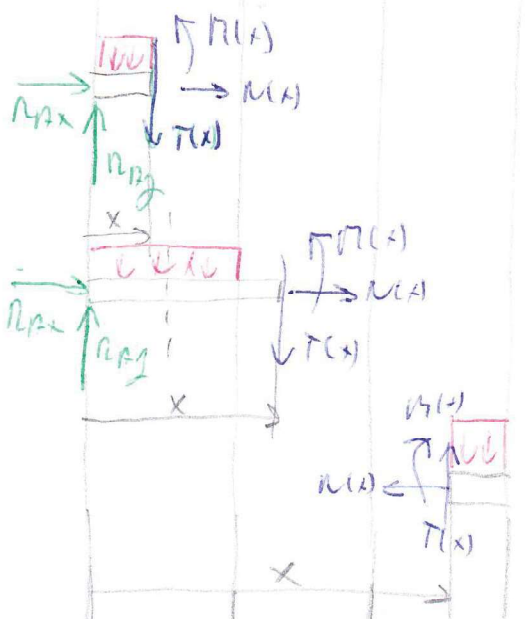 M(x)
N(x)
R_Ax
T(x)
R_Ay
x
M(x)
N(x)
R_Ax
R_Ay
T(x)
x
M(x)
N(x)
T(x)
x